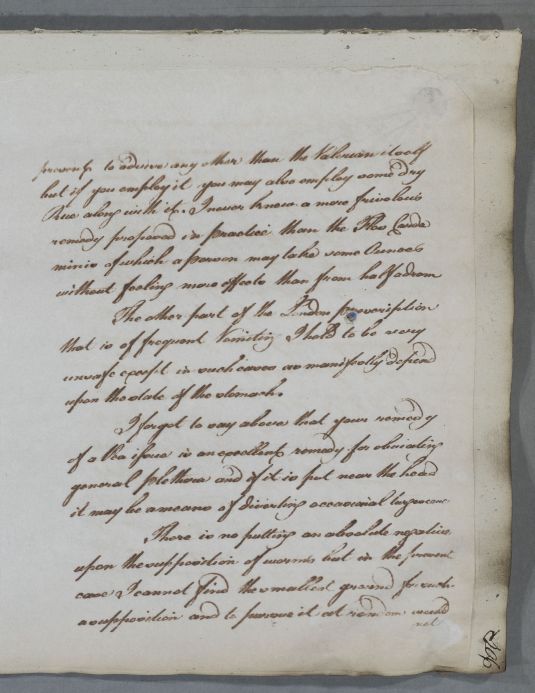 present to advise any other than the Valerian itself
but if you employ it you may also employ some dry
Rue along with it. I never knew a more frivolous
remedy proposed in practice than the Flos Carda
minis of which a person may take some Ounces
without feeling more effects than from half a dram
The other part of the London prescription
that is of frequent Vomiting I hold to be very
unsafe except in such cases as manifestly depend
upon the state of the stomach.
I forgot to say above that your remedy
of a Pea issue is an excellent remedy for obviating
general plethora and if it is put near the head
it may be a means of diverting occasional turgescence
There is no putting an absolute negative
upon the supposition of worms but in the present
case I cannot find the smallest ground for such
a supposition and to pursue it at random would
not